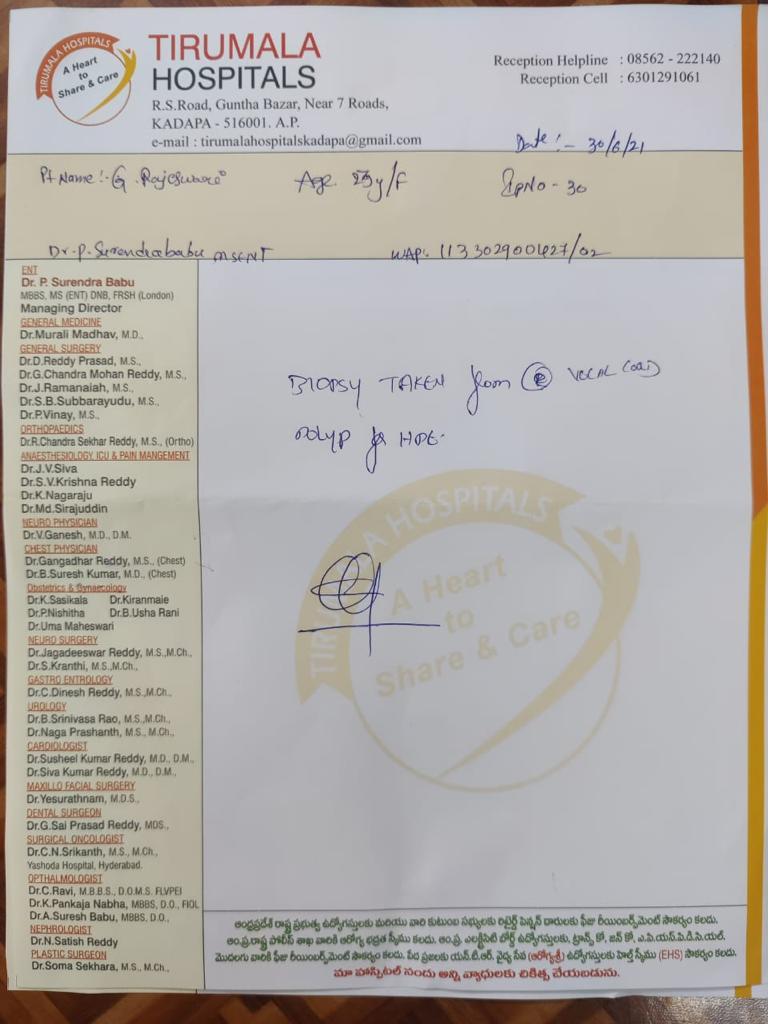 TIRUMALA HOSPITALS
A Heart
to
Share & Care
TIRUMALA
HOSPITALS
R.S.Road, Guntha Bazar, Near 7 Roads,
KADAPA - 516001. A.P.
e-mail : tirumalahospitalskadapa@gmail.com
Reception Helpline : 08562 - 222140
Reception Cell : 6301291061
Date :- 30/6/21
Pt Name :- G. Rajeswari Age. 23y/F IpNo - 30
Dr. P. Surendrababu MSENT WAP:
ENT
Dr. P. Surendra Babu
MBBS, MS (ENT) DNB, FRSH (London)
Managing Director
GENERAL MEDICINE
Dr.Murali Madhav, M.D.,
GENERAL SURGERY
Dr.D.Reddy Prasad, M.S.,
Dr.G.Chandra Mohan Reddy, M.S.,
Dr.J.Ramanaiah, M.S.,
Dr.S.B.Subbarayudu, M.S.,
Dr.P.Vinay, M.S.,
ORTHOPAEDICS
Dr.R.Chandra Sekhar Reddy, M.S., (Ortho)
ANAESTHESIOLOGY, ICU & PAIN MANGEMENT
Dr.J.V.Siva
Dr.S.V.Krishna Reddy
Dr.K.Nagaraju
Dr.Md.Sirajuddin
NEURO PHYSICIAN
Dr.V.Ganesh, M.D., D.M.
CHEST PHYSICIAN
Dr.Gangadhar Reddy, M.S., (Chest)
Dr.B.Suresh Kumar, M.D., (Chest)
Obstetrics & Gynaecology
Dr.K.Sasikala Dr.Kiranmaie
Dr.P.Nishitha Dr.B.Usha Rani
Dr.Uma Maheswari
NEURO SURGERY
Dr.Jagadeeswar Reddy, M.S.,M.Ch.,
Dr.S.Kranthi, M.S.,M.Ch.,
GASTRO ENTROLOGY
Dr.C.Dinesh Reddy, M.S.,M.Ch.,
UROLOGY
Dr.B.Srinivasa Rao, M.S.,M.Ch.,
Dr.Naga Prashanth, M.S., M.Ch.,
CARDIOLOGIST
Dr.Susheel Kumar Reddy, M.D., D.M.,
Dr.Siva Kumar Reddy, M.D., D.M.,
MAXILLO FACIAL SURGERY
Dr.Yesurathnam, M.D.S.,
DENTAL SURGEON
Dr.G.Sai Prasad Reddy, MDS.,
SURGICAL ONCOLOGIST
Dr.C.N.Srikanth, M.S., M.Ch.,
Yashoda Hospital, Hyderabad.
OPTHALMOLOGIST
Dr.C.Ravi, M.B.B.S., D.O.M.S. FLVPEI
Dr.K.Pankaja Nabha, MBBS, D.O., FIOL
Dr.A.Suresh Babu, MBBS, D.O.,
NEPHROLOGIST
Dr.N.Satish Reddy
PLASTIC SURGEON
Dr.Soma Sekhara, M.S., M.Ch.,
BIOPSY TAKEN from VOCAL CORD
POLYP for HPE.
TIRUMALA HOSPITALS
A Heart
to
Share & Care
ఆంధ్రప్రదేశ్ రాష్ట్ర ప్రభుత్వ ఉద్యోగస్తులకు మరియు వారి కుటుంబ సభ్యులకు రిటైర్డ్ పెన్షన్ దారులకు ఫీజు రీయింబర్స్‌మెంట్ సౌకర్యం కలదు.
ఆం.ప్ర.రాష్ట్ర పోలీస్ శాఖ వారికి ఆరోగ్య భద్రత స్కీము కలదు. ఆం.ప్ర. ఎలక్ట్రిసిటి బోర్డ్ ఉద్యోగస్తులకు, ట్రాన్స్ కో, జన్ కో, ఎ.పి.యస్.పి.డి.సి.యల్.
మొదలగు వారికి ఫీజు రీయింబర్స్‌మెంట్ సౌకర్యం కలదు. పేద ప్రజలకు యన్.టి.ఆర్. వైద్య సేవ (ఆరోగ్యశ్రీ) ఉద్యోగులకు హెల్త్ స్కీము (EHS) సౌకర్యం కలదు.
మా హాస్పిటల్ నందు అన్ని వ్యాధులకు చికిత్స చేయబడును.